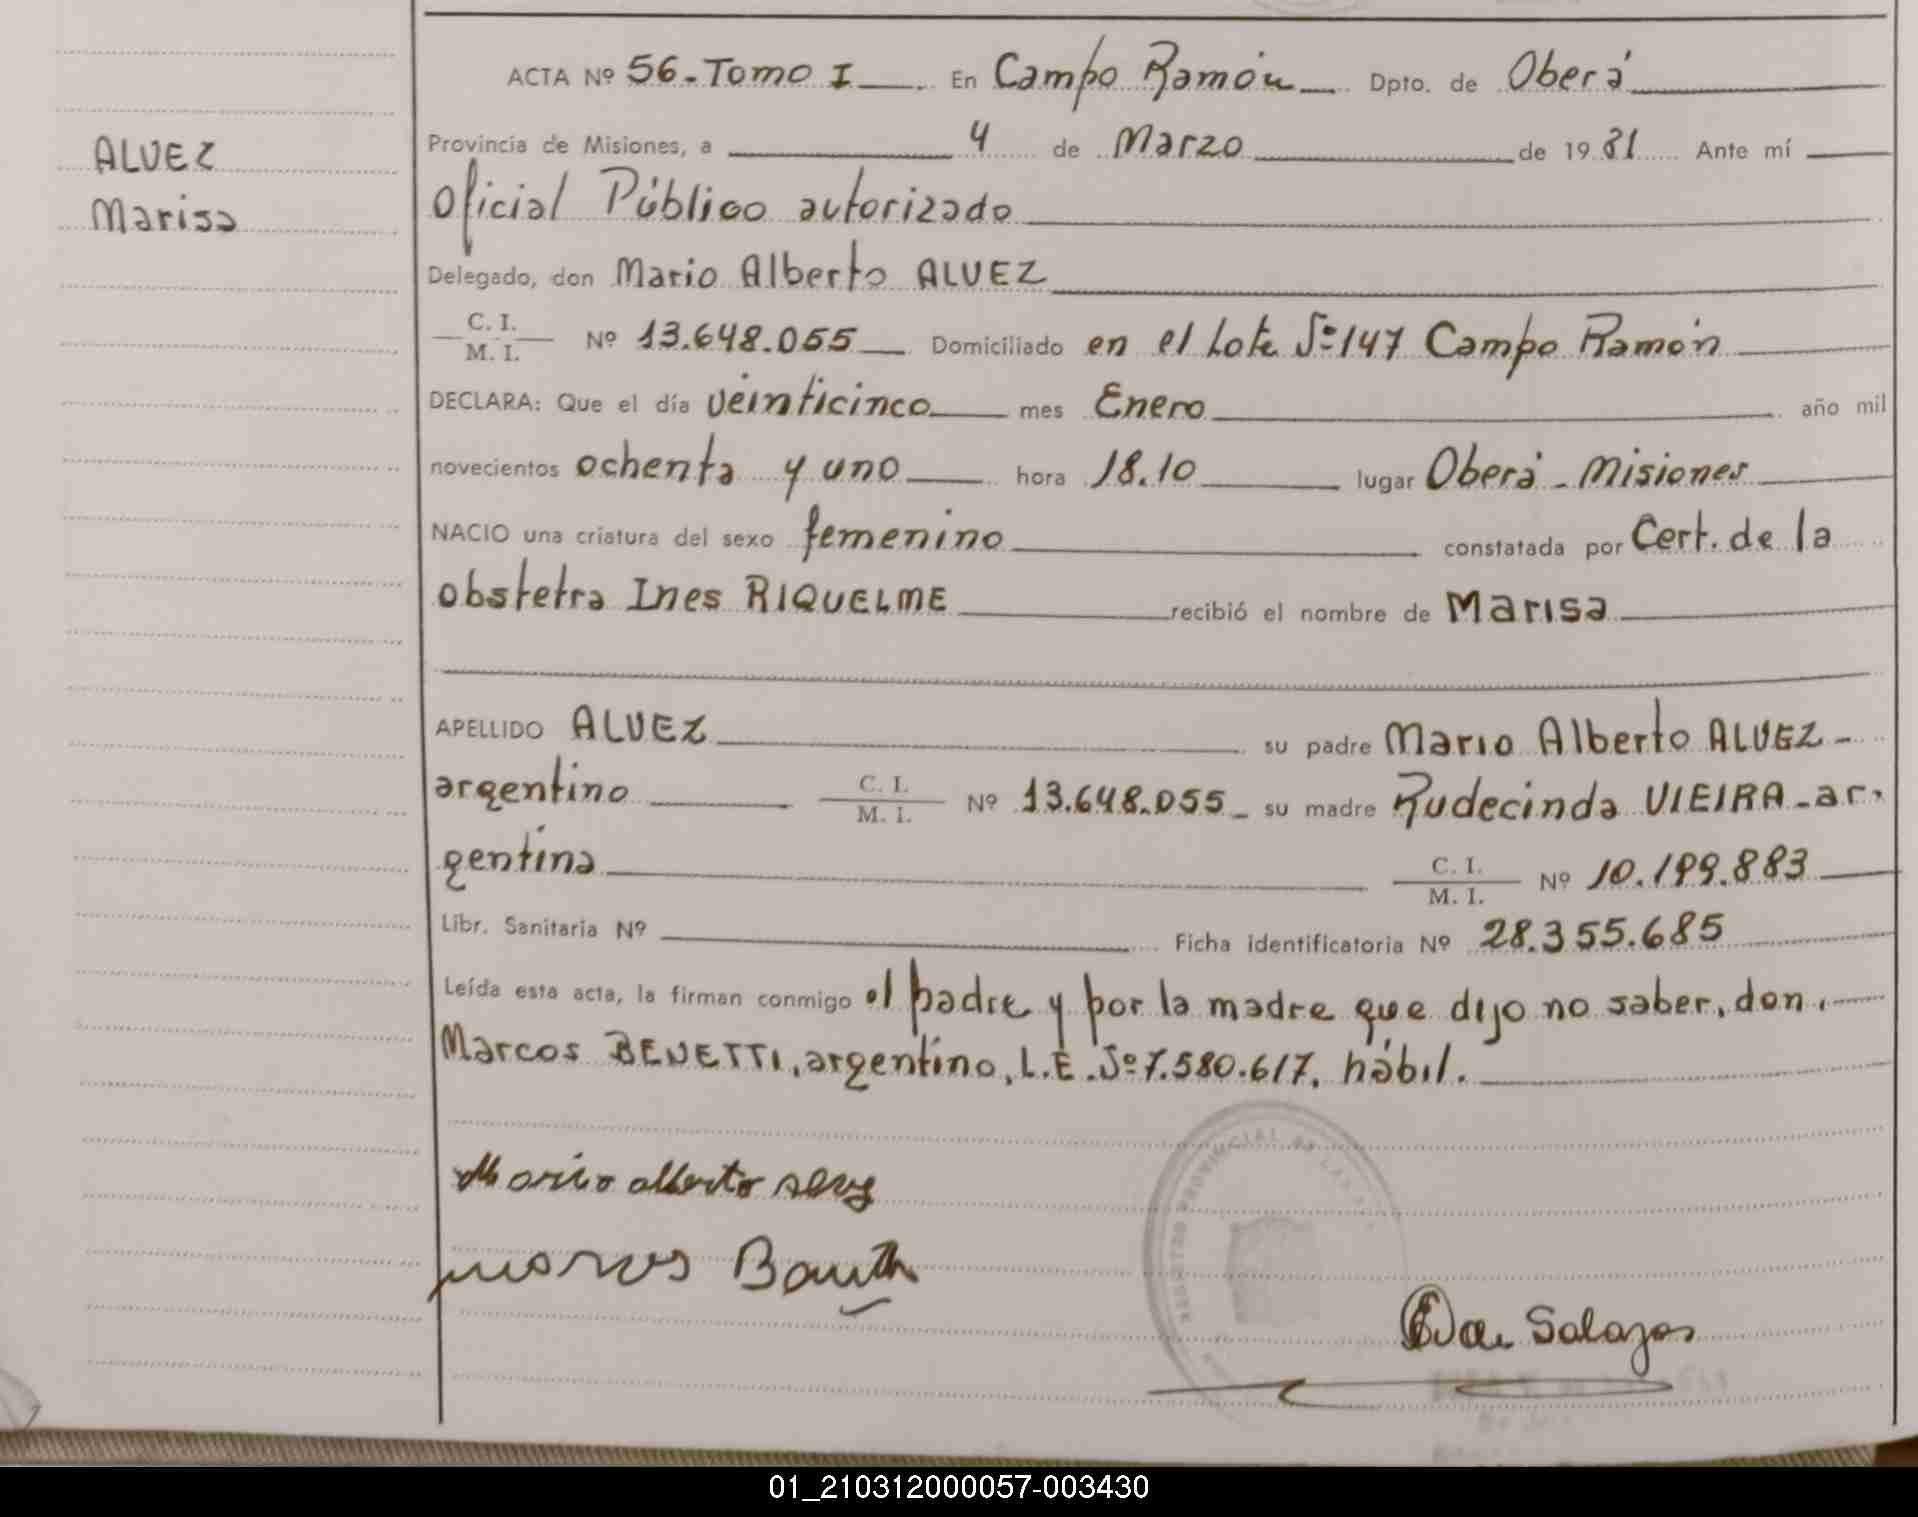 ALVEZ
Marisa
ACTA Nº 56-Tomo I En Campo Ramón Dpto. de Oberá
Provincia de Misiones, a 4 de Marzo de 1981 Ante mí
Oficial Público autorizado
Delegado, don Mario Alberto ALVEZ
C. I.
M. I. Nº 13.648.055 Domiciliado en el Lote Nº 147 Campo Ramón
DECLARA: Que el día veinticinco mes Enero año mil
novecientos ochenta y uno hora 18.10 lugar Oberá - Misiones
NACIO una criatura del sexo femenino constatada por Cert. de la
obstetra Ines RIQUELME recibió el nombre de Marisa
APELLIDO ALVEZ su padre Mario Alberto ALVEZ -
argentino C. I. M. I. Nº 13.648.055 su madre Rudecinda VIEIRA - ar-
gentina C. I. M. I. Nº 10.199.883
Libr. Sanitaria Nº Ficha identificatoria Nº 28.355.685
Leída esta acta, la firman conmigo el padre y por la madre que dijo no saber, don
Marcos BENETTI, argentino, L.E. Nº 7.580.617, hábil.
REGISTRO PROVINCIAL DE LAS
Mario alberto
marcos
Salazar
01_210312000057-003430